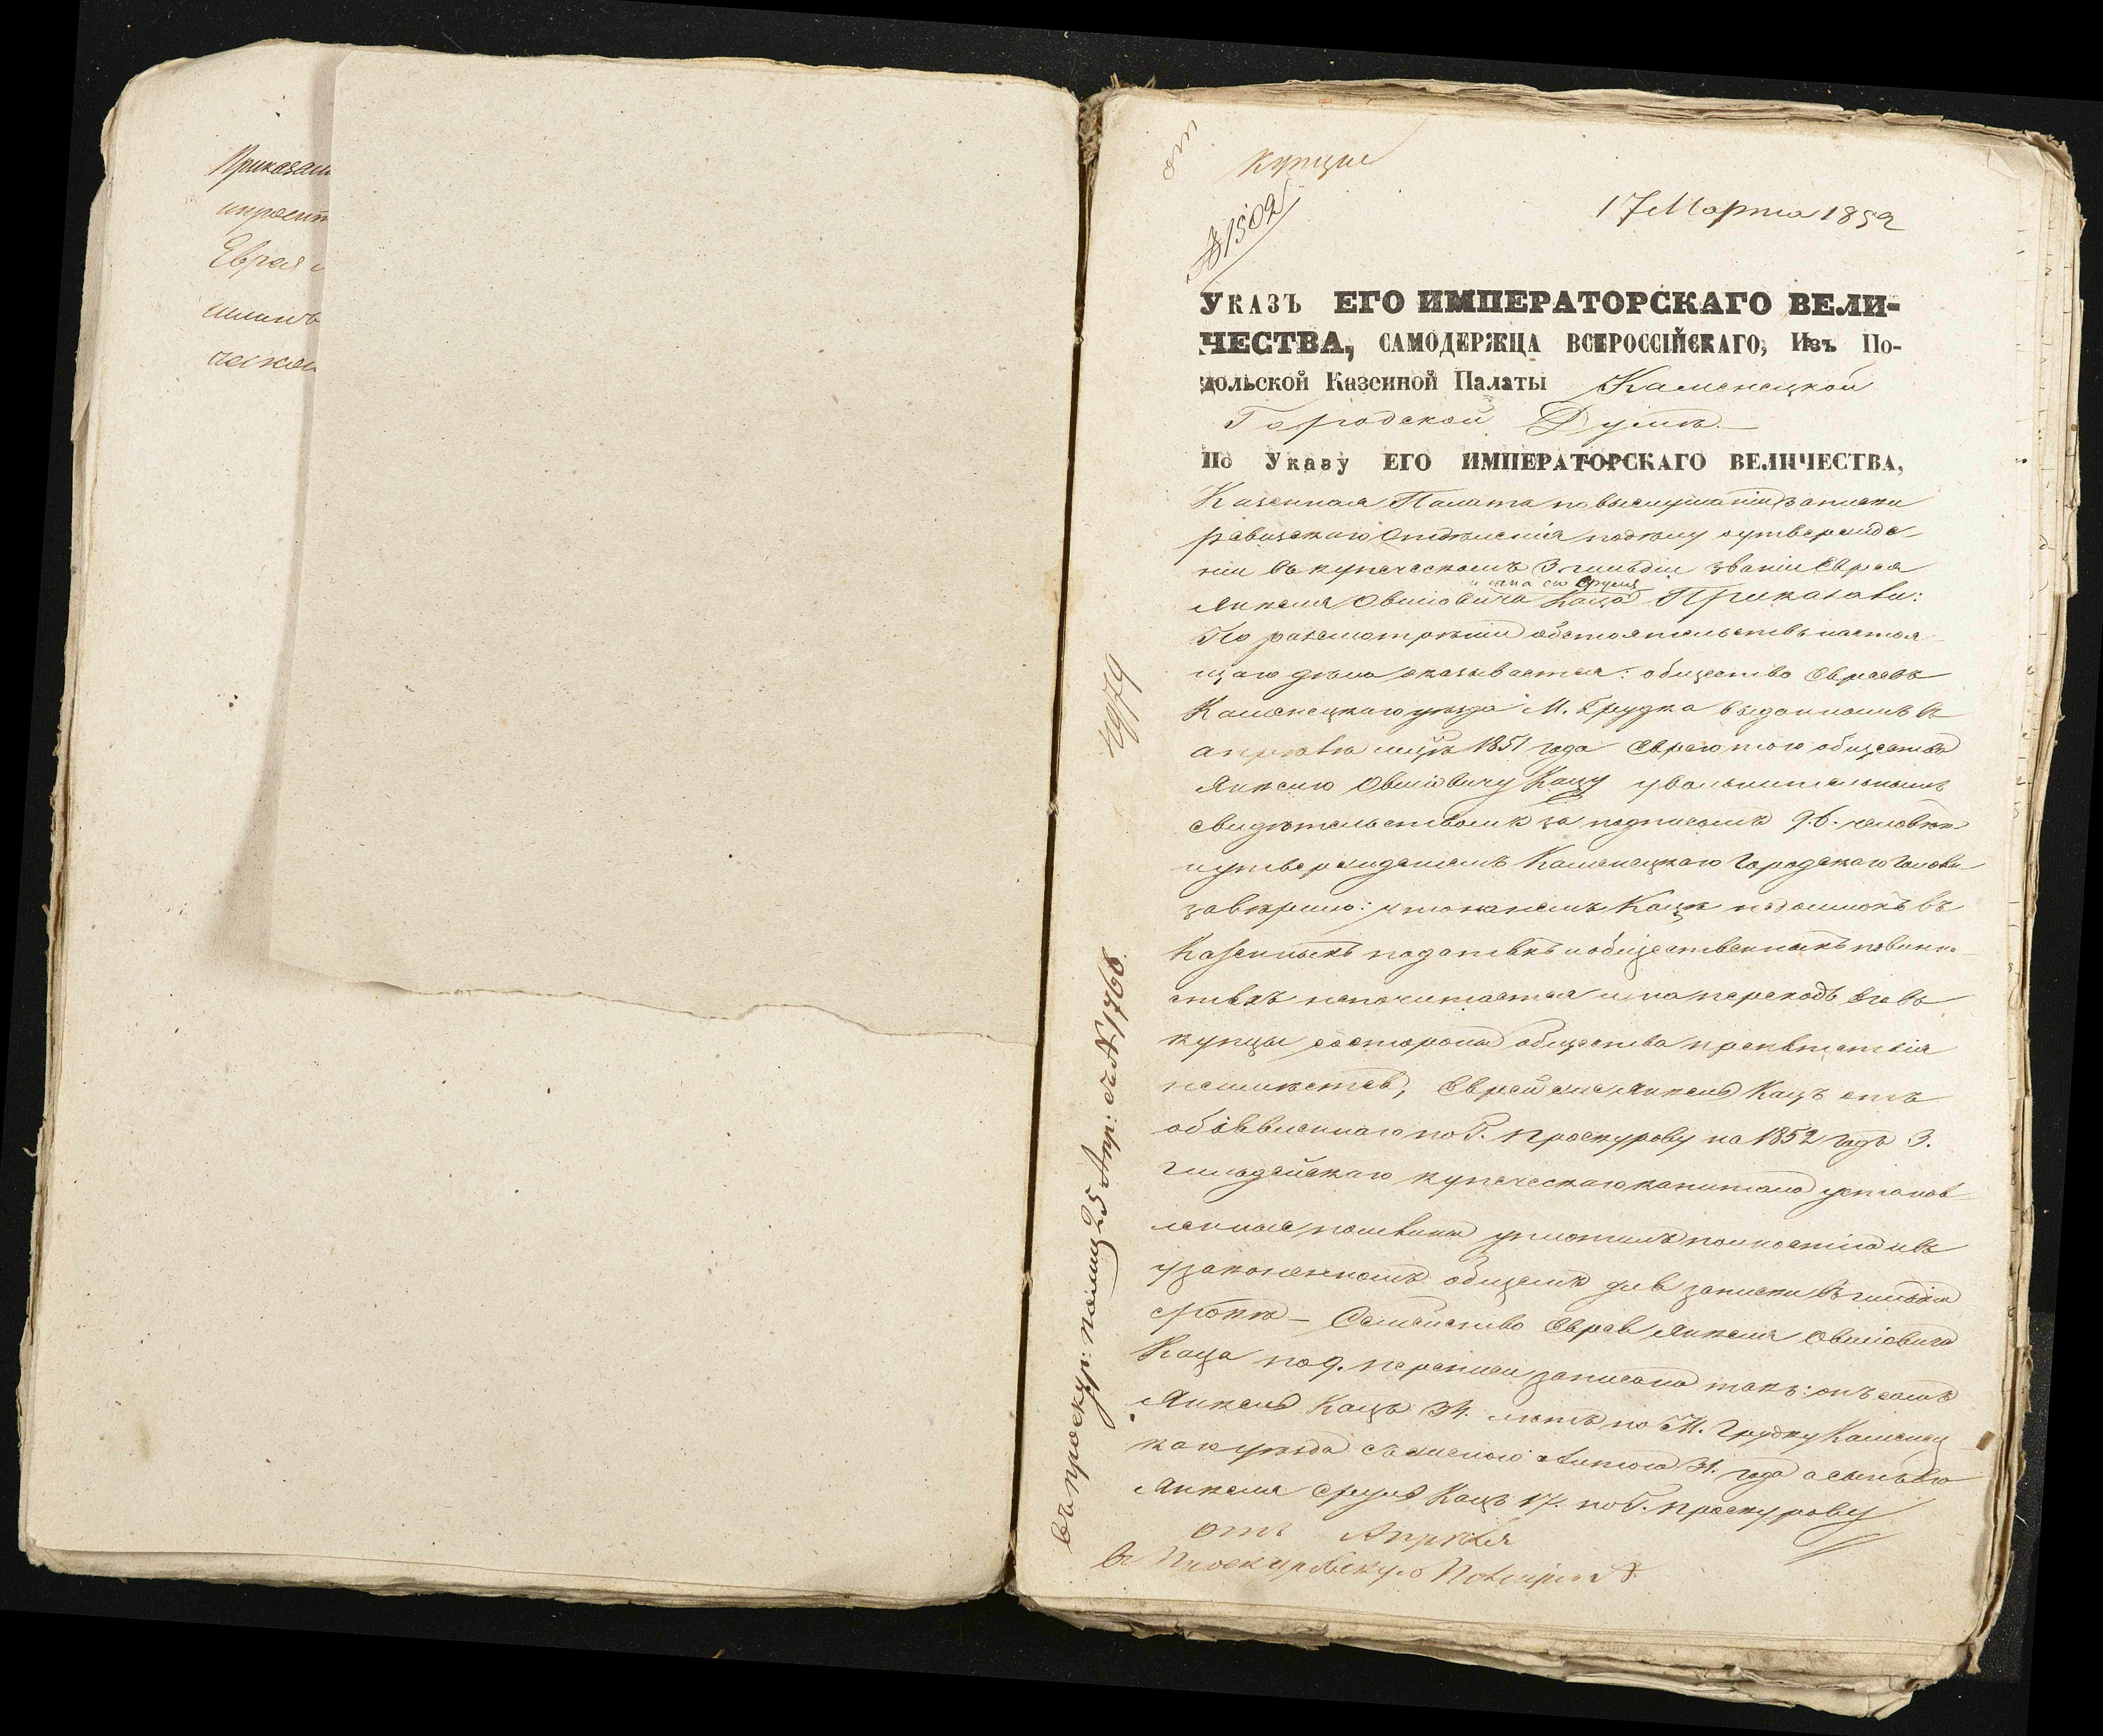 Приказан
Еврея
от
купцы
№1502
17 Марта 1852
УКАЗЪ ЕГО ИМПЕРАТОРСКАГО ВЕЛИ-
ЧЕСТВА, САМОДЕРЖЦА ВСЕРОССІЙСКАГО, Изъ По-
дольской Казенной Палаты Каменецкой
Городской Думѣ.
По Указу ЕГО ИМПЕРАТОРСКАГО ВЕЛИЧЕСТВА,
Казенная Палата по выслушаніи записки
ревизскаго Отдѣленія по дѣлу о утвержде-
ніи въ купеческомъ 3 гильдіи званіи Еврея
и сына его Сруля
Янкеля Овшіовича Каца Приказали:
По разсмотрѣніи обстоятельствъ настоя
щаго дѣла оказывается: общество Евреевъ
Каменецкаго уѣзда М. Грудка выданномъ въ
апрѣлѣ мцѣ 1851 года Еврею того общества
Янкелю Овшіовичу Кацу увольнительнымъ
свидѣтельствомъ за подписомъ 96. человѣкъ
и утвержденіемъ Каменецкаго Городскаго Головы
завѣрило: что на немъ Кацѣ недоимокъ въ
Казенныхъ податяхъ и общественныхъ повинно
стяхъ не почитается и на переходъ его въ
купцы со стороны общества препятствія
неимѣетъ, Еврей же Янкель Кацъ отъ
объявленнаго по Г. Проскурову на 1852 годъ 3.
гильдейскаго купеческаго капитала установ
ленные пошлины уплотилъ полностію и въ
узаконенномъ общемъ для записки въ гильдіи
срокѣ – Семейство Еврея Янкеля Овшіовича
Каца по 9. переписи записано такъ: онъ самъ
Янкель Кацъ 34. лѣтъ по М. Грудку Каменец
каго уѣзда съ женою 31. года а сынъ его
Янкеля Сруль Кацъ 17. по Г. Проскурову
отъ Апрѣля
въ Проскуровскую Полицію №
въ проскур: полиц 25 Апр: за №1768